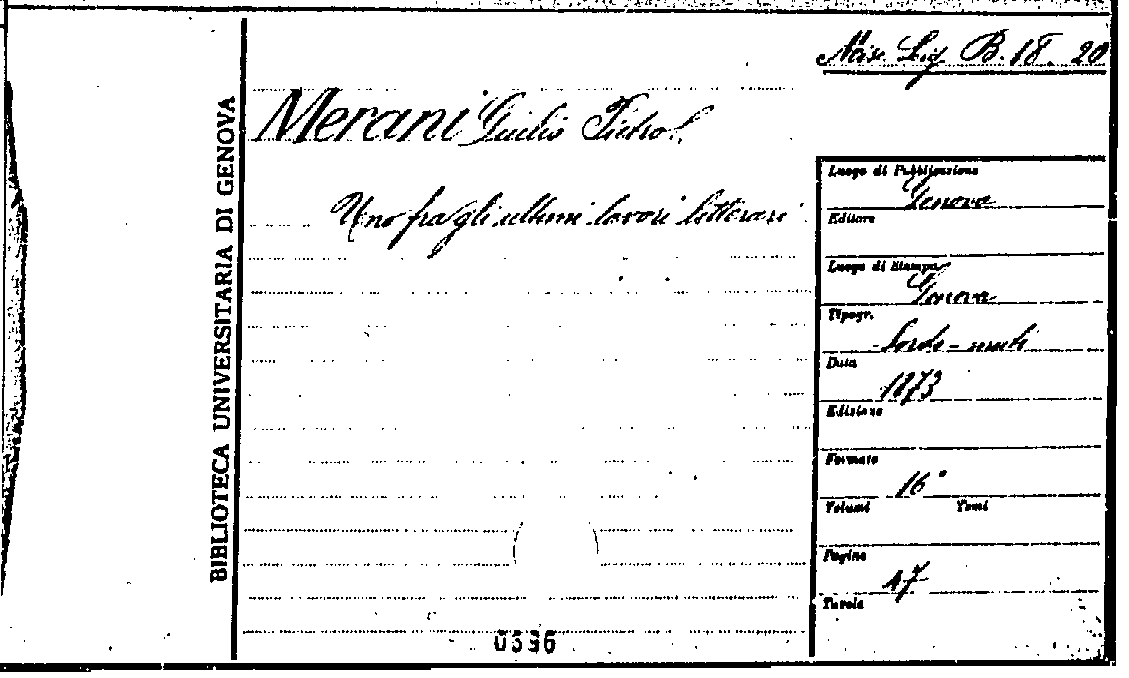 Misc. Lig. B. 18. 20
Merani Giulio Pietro
Uno fra gli ultimi lavori letterari
BIBLIOTECA UNIVERSITARIA DI GENOVA
Luogo di Pubblicazione
Genova
Editore
Luogo di Stampa
Genova
Tipogr.
Sordo-muti
Data
1873
Edizione
Formato
16°
Volumi Tomi
Pagine
47
Tavole
0336